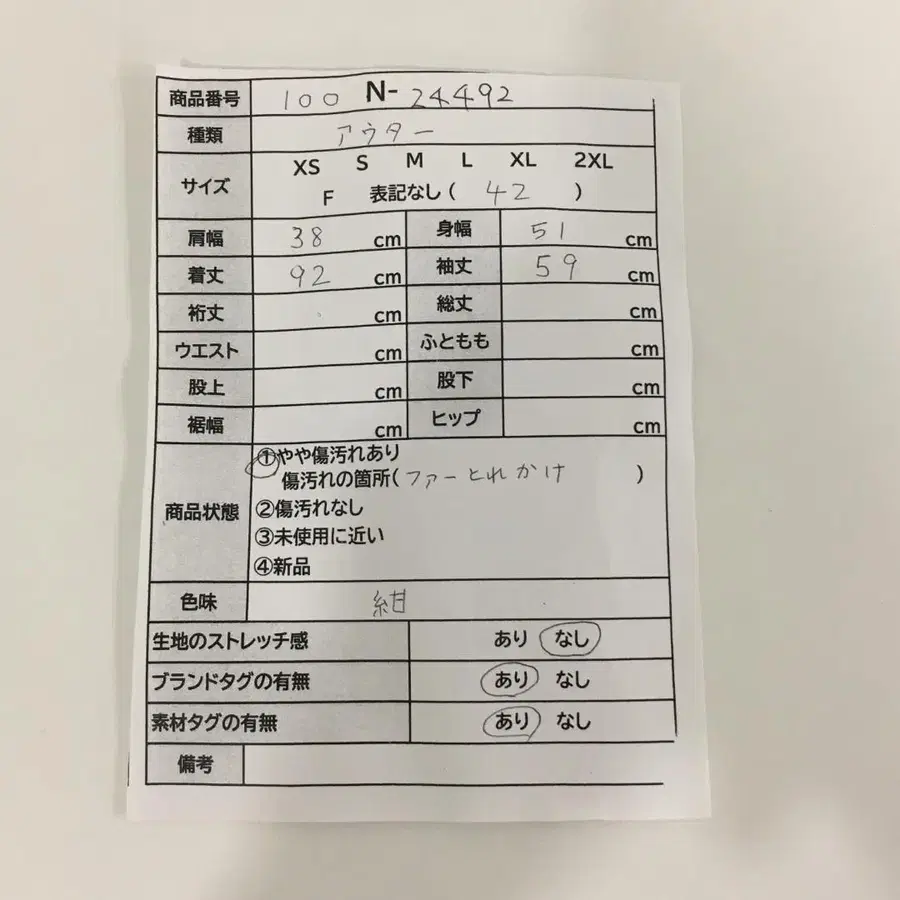 商品番号 100 N- 24492
種類 アウター
サイズ XS S M L XL 2XL
F 表記なし ( 42 )
肩幅 38 cm 身幅 51 cm
着丈 92 cm 袖丈 59 cm
裄丈 cm 総丈 cm
ウエスト cm ふともも cm
股上 cm 股下 cm
裾幅 cm ヒップ cm
商品状態 ①やや傷汚れあり
傷汚れの箇所(ファーとれかけ )
②傷汚れなし
③未使用に近い
④新品
色味 紺
生地のストレッチ感 あり なし
ブランドタグの有無 あり なし
素材タグの有無 あり なし
備考